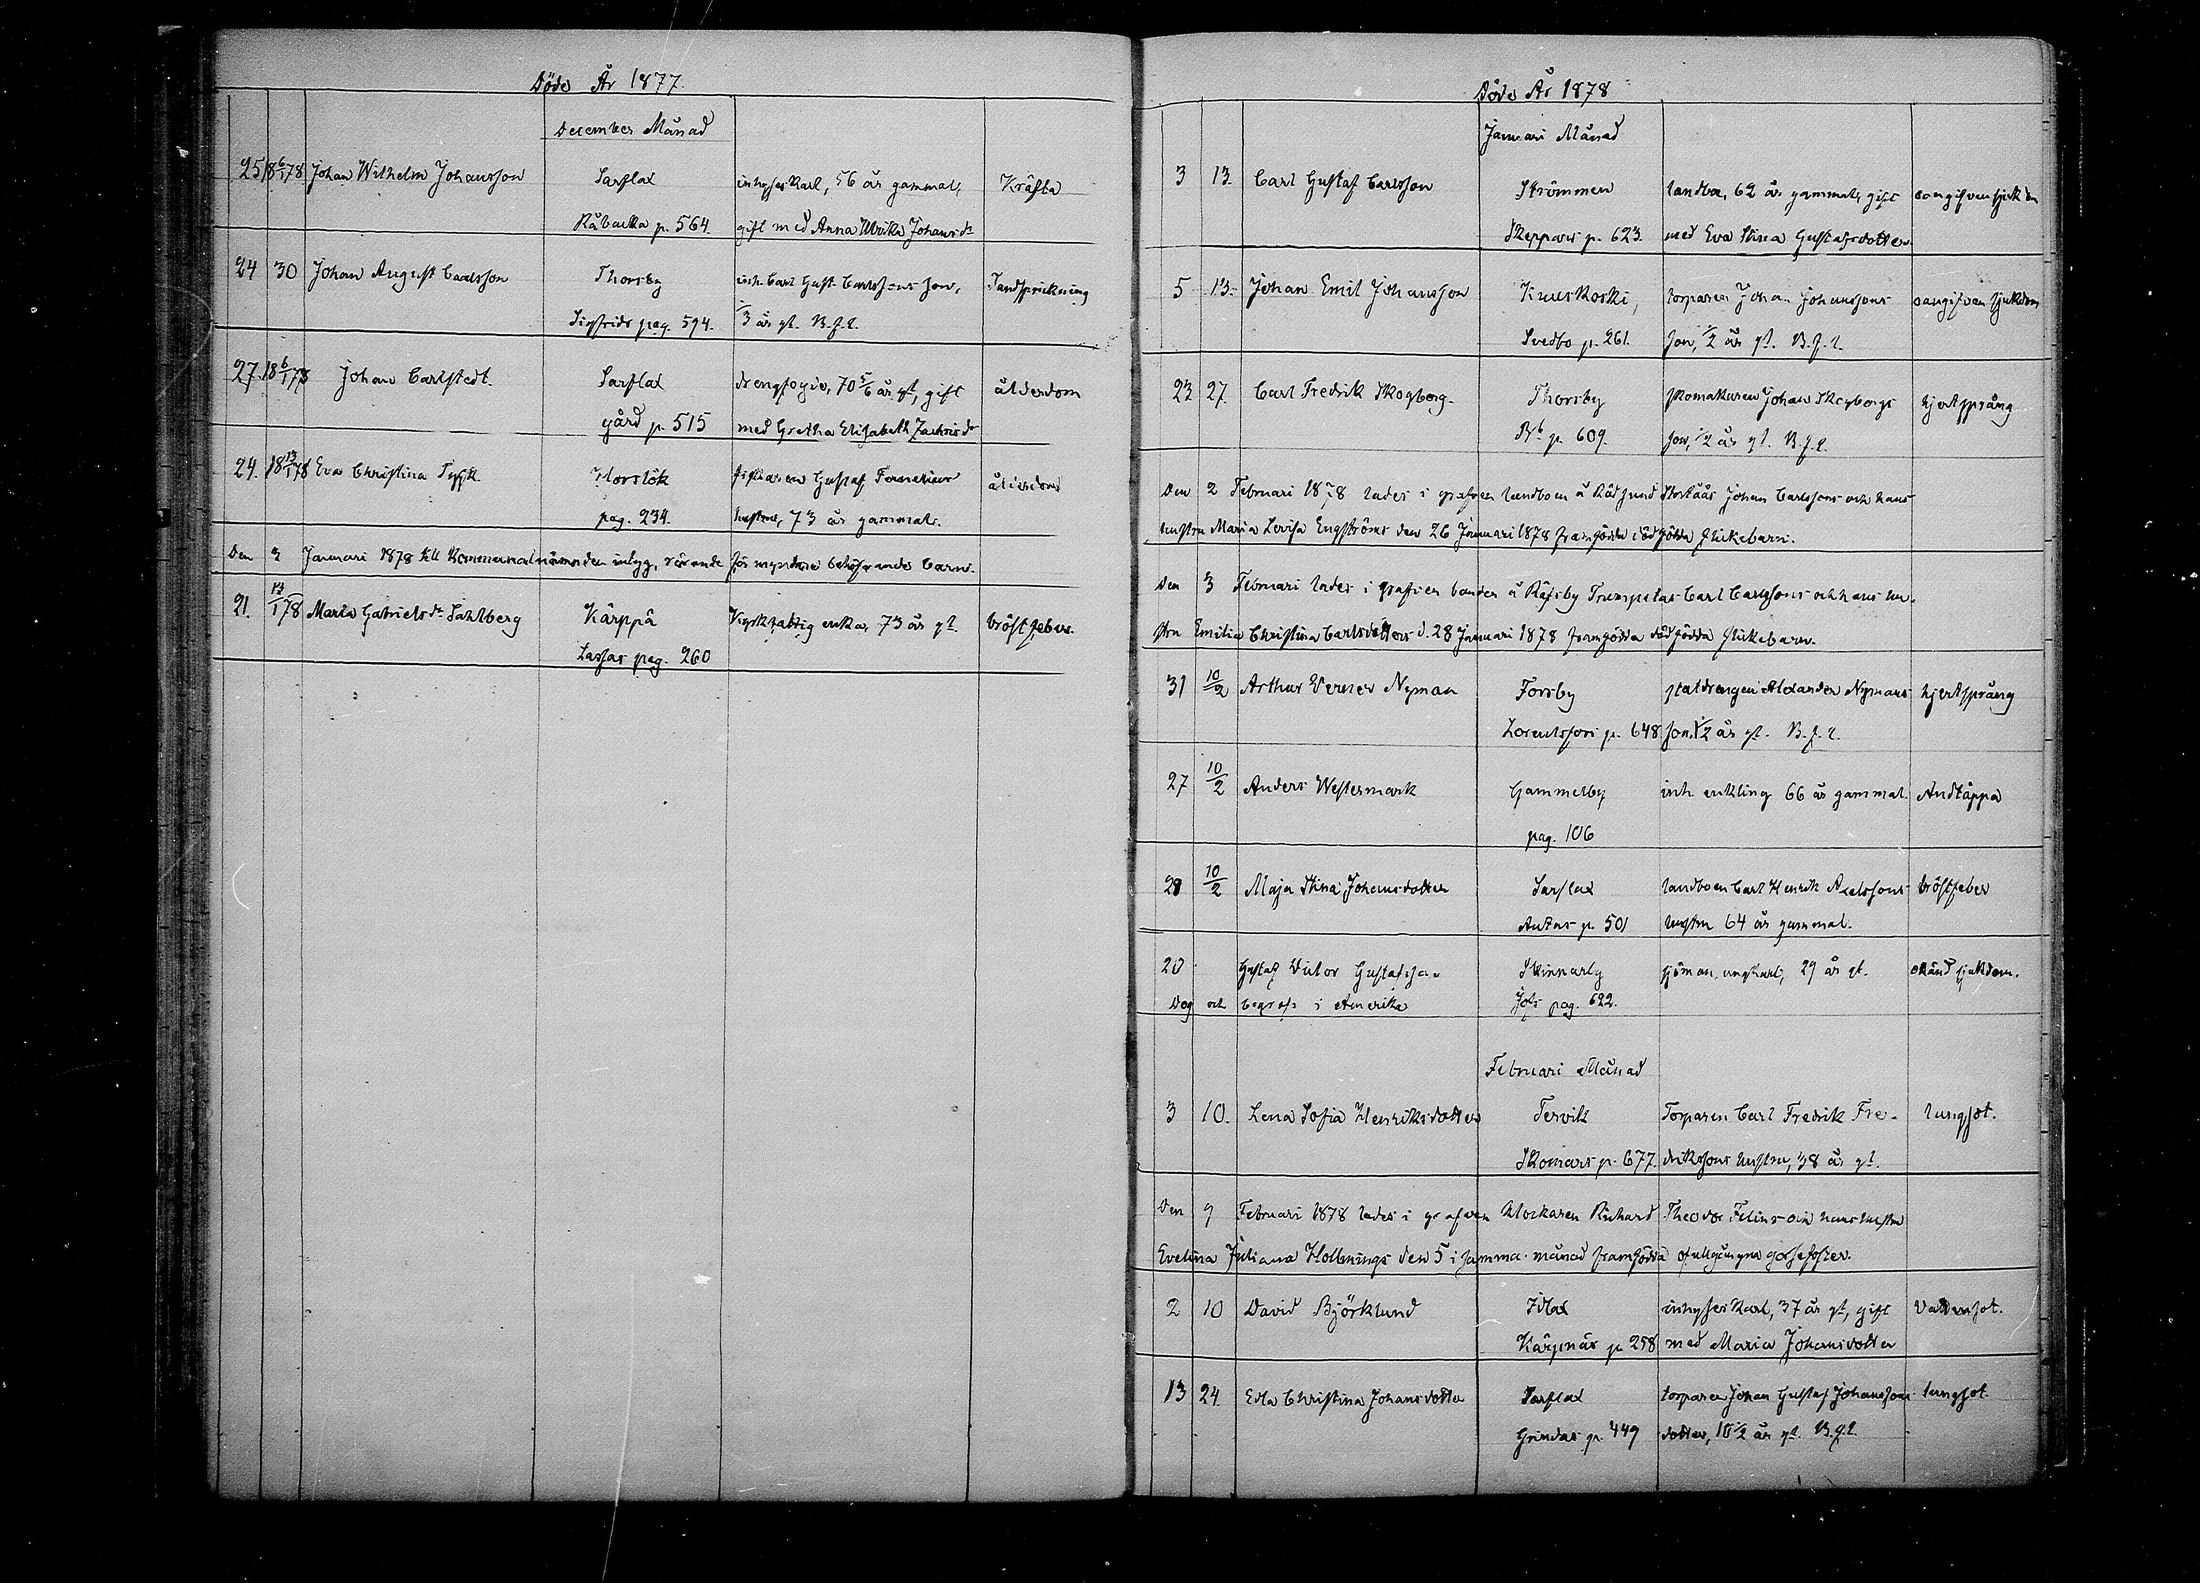 Döde År 1877.
December Månad
25 18 6/1 78 Johan Wilhelm Johansson Sarflax inhyses Karl, 56 år gammal, Kräfta
Råbacka p. 564. gift med Anna Ulrika Johansdr
24 30 Johan August Carlsson Thorsby inh. Carl Gust. Carlssons son, Tandsprickning
Sigfrids pag. 594. 1/3 år gl. B.f.l.
27. 18 6/1 78 Johan Carlstedt. Sarflax drengfogde, 70 5/6 år gl, gift ålderdom
gård p. 515 med Gretha Elisabeth Zachrisdr
24. 18 13/1 78 Eva Christina Tysk. Horslök Gustaf ålderdom
pag. 234. hustru, 73 år gammal.
Den 3 Januari 1878 till Kommunalnämnden intyg, rörande förmyndare behöfvande barn.
21. 13/1 78 Maria Gabrielsdr Sahlberg Kärppä enka, 73 år gl. bröstfeber.
Lassas pag. 260
Döde År 1878
Januari Månad
3 13. Carl Gustaf Carlsson Strömmen landbo, 62 år gammal, gift oangifven sjukdom
Skeppars p. 623. med Eva Stina Gustafsdotter
5 13. Johan Emil Johansson Kuuskoski, torparen Johan Johanssons oangifven sjukdom
Svedbo p. 261. son, 1/2 år gl. B.f.l.
23 27. Carl Fredrik Skogberg. Thorsby skomakaren Johan Skogbergs hjertsprång
Bk p. 609. son, 1/2 år gl. B.f.l.
Den 2 Februari 1878 lades i grafven landboen å Rådsund Storkåås Johan Carlssons och hans
hustru Maria Lovisa Engströms den 26 Januari 1878 framfödda dödfödda flickebarn.
Den 3 Februari lades i grafven bonden å Räfsby Trumpetas Carl Carlssons och hans hu-
stru Emilia Christina Carlsdotters d. 28 Januari 1878 framfödda dödfödda flickebarn.
31 10/2 Arthur Verner Nyman Forsby statdrengen Alexander Nymans hjertsprång
Lorentsfors p. 648 son, 1/2 år gl. B.f.l.
27 10/2 Anders Westermark Gammelby inh. enkling 66 år gammal. Andtäppa
pag. 106
29 10/2 Maja Stina Johansdotter Sarflax landboen Carl Henrik Axelssons bröstfeber
Antas p. 501 hustru 64 år gammal.
20 Gustaf Victor Gustafsson Skinnarby sjöman, ungkarl, 29 år gl. okänd sjukdom.
Dog och begrofs i Amerika Jofs pag. 622.
Februari Månad
3 10. Lena Sofia Henriksdotter Tervik Torparen Carl Fredrik Fre- lungsot.
Skomars p. 677. drikssons hustru, 38 år gl.
Den 9 Februari 1878 lades i grafven klockaren Richard Theodor Felins och hans hustru
Evelina Juliana Hollmings den 5 i samma månad framfödda ofullgångna gossefoster.
2 10 David Björklund Isax inhyses Karl, 37 år gl, gift Vattensot.
Kärpnäs p. 258 med Maria Johansdotter
13 24. Edla Christina Johansdotter Sarflax torparen Johan Gustaf Johanssons lungsot.
Grindas p. 449 dotter, 10 1/2 år gl. B.f.l.